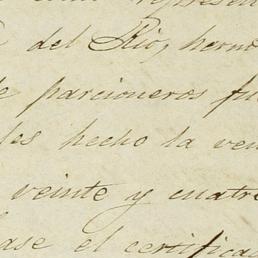 del Rio, herm
de parcioneros fu
les hecho la ven
veinte y cuatro
ase el certifica